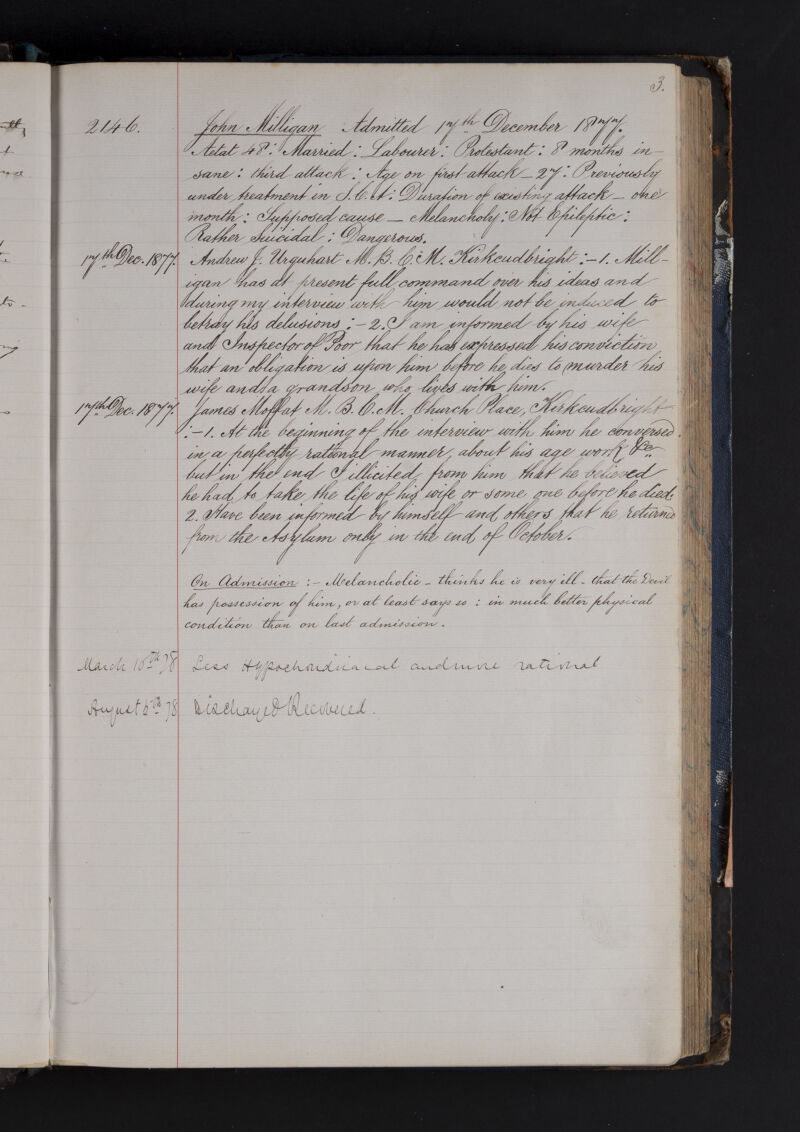 3.
2146. John Milligan Admitted 17th December 1877.
Aetat 48: Married: Labourer: Protestant: 8 months in-
sane: third attack: Age on first attack - 27: Previously
under treatment in S.C.A: Duration of existing attack - one
month: Supposed cause - Melancholy: Not Epileptic:
Rather Suicidal: Dangerous.
17th Dec. 1877. Andrew J. Urquhart M.B.C.M. Kirkcudbright:- 1. Mill-
igan has at present full command over his ideas and
during my interview with him would not be induced to
betray his delusions:- 2. I am informed by his wife
and Inspector of Poor that he has expressed his conviction
that an obligation is upon him before he dies to murder his
wife and a grandson who lives with him.
17th Dec. 1877. James Moffat M.B.C.M. Church Place, Kirkcudbright
:- 1. At the beginning of the interview with him he conversed
in a perfectly rational manner, about his age work &c
but in the end I illicited from him that he believed
he had to take the life of his wife or some one before he died.
2. Have been informed by himself and others that he returned
from the Asylum only in the end of October.
On Admission:- Melancholic - thinks he is very ill - that the Devil
has possession of him, or at least says so: in much better physical
condition than on last admission.
March 10th 78 Less Hypochondriacal and more rational
August 6th 78 Discharged Recovered.